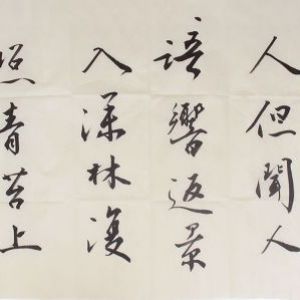 人但聞人
語響返景
入深林復
照青苔上